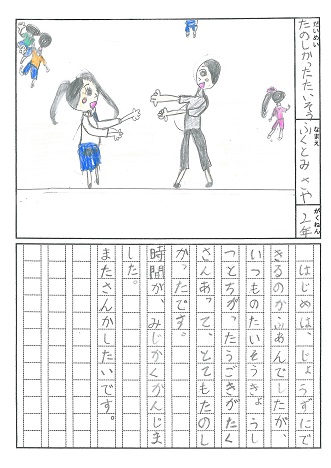 だいめい
たのしかったたいそう
なまえ
ふくとみ さや
がくねん
2年
はじめは、じょうずにで
きるのかふあんでしたが、
いつものたいそうきょうし
つとちがったうごきがたく
さんあって、とてもたのし
かったです。
時間が、みじかくかんじま
した。
またさんかしたいです。